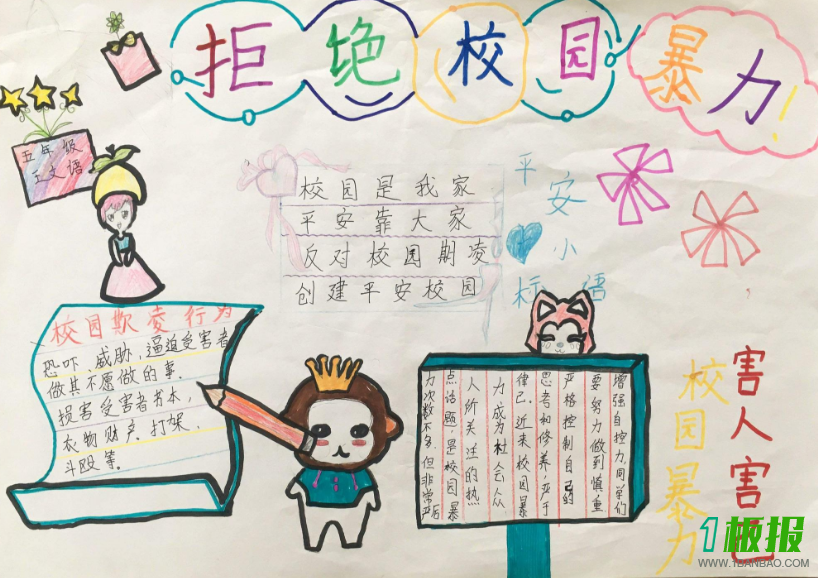 拒绝校园暴力!
五年级
王文语
校园是我家
平安靠大家
反对校园期凌
创建平安校园
平安小标语
校园欺凌行为
恐吓、威胁、逼迫受害者
做其不愿做的事.
损害受害者书本,
衣物财产.打架、
斗殴等.
增强自控力.同学们
要努力做到慎重
严格控制自己的
思考和修养,严于
律己.近来校园暴
力成为社会众
人所关注的热
点话题,是校园暴
力次数不多.但非常严
害人害己
校园暴力
1板报
WWW.1BANBAO.COM